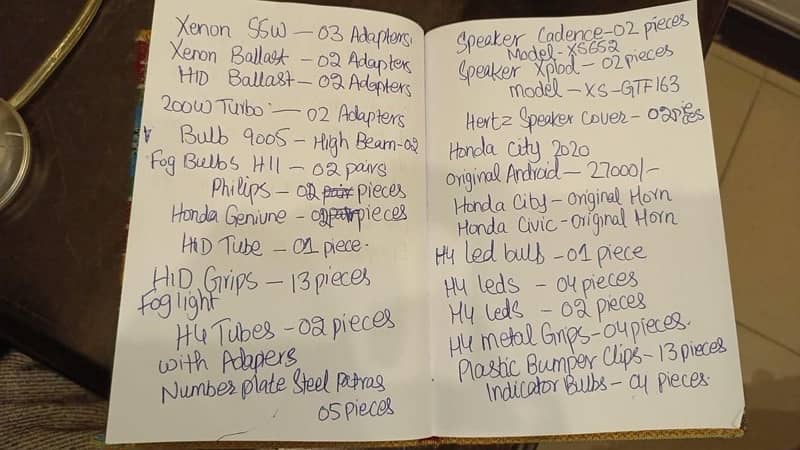 Xenon 55W - 03 Adapters.
Xenon Ballast - 02 Adapters
HID Ballast - 02 Adapters
200W Turbo - 02 Adapters
Bulb 9005 - High Beam - 02
Fog Bulbs H11 - 02 pairs
Philips - 02 pieces
Honda Geniune - 02 pieces
HID Tube - 01 piece.
HID Grips - 13 pieces
Fog light
H4 Tubes - 02 pieces
with Adapers
Number plate Steel Patras
05 pieces
Speaker Cadence - 02 pieces
Model - XS652
Speaker Xplod - 02 pieces
model - XS - GTF163
Hertz Speaker cover - 02 pieces
Honda City 2020
Original Android - 27000/-
Honda City - Original Horn
Honda Civic - Original Horn
H4 led bulb - 01 piece
H4 leds - 04 pieces
H4 leds - 02 pieces
H4 metal Grips - 04 pieces.
Plastic Bumper Clips - 13 pieces
Indicator Bulbs - 04 pieces.